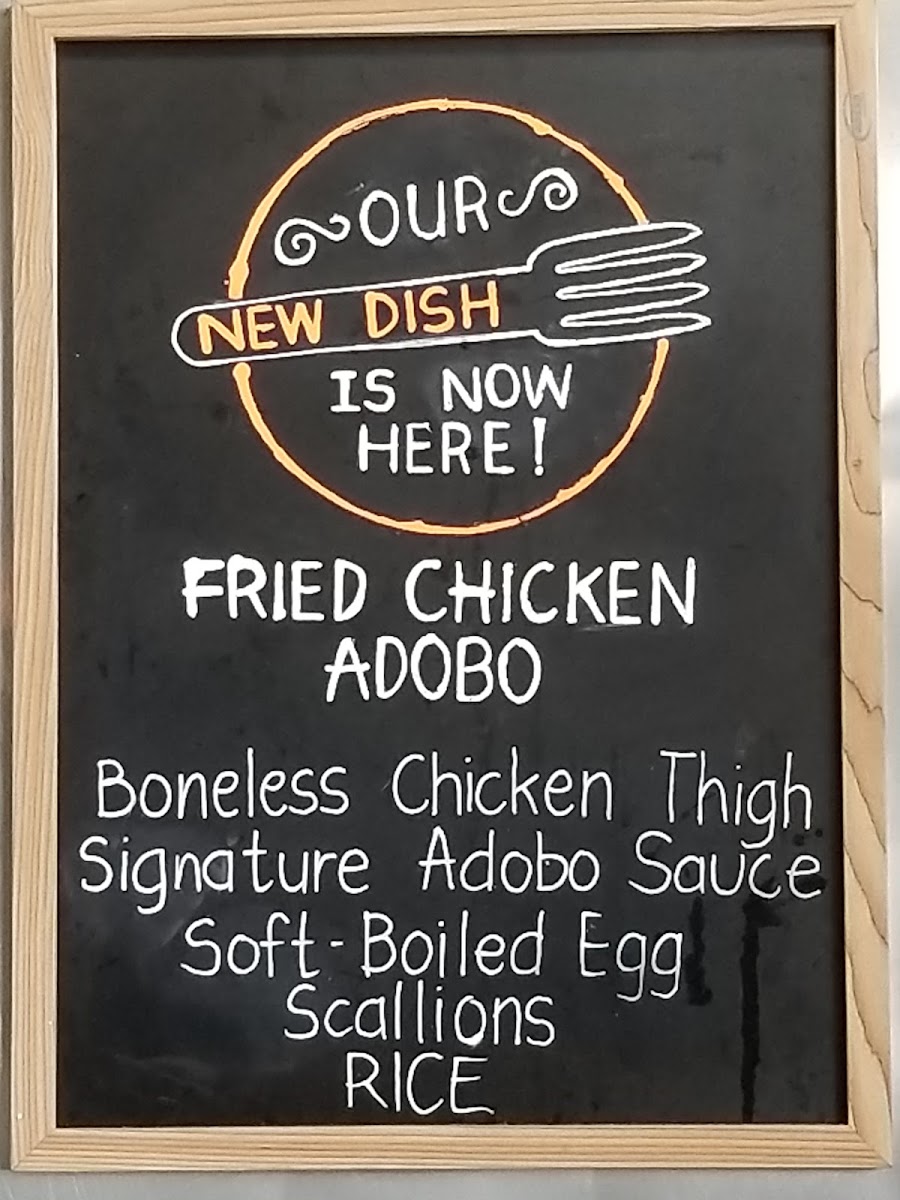 OUR
NEW DISH
IS NOW
HERE!
FRIED CHICKEN
ADOBO
Boneless Chicken Thigh
Signature Adobo Sauce
Soft-Boiled Egg
Scallions
RICE